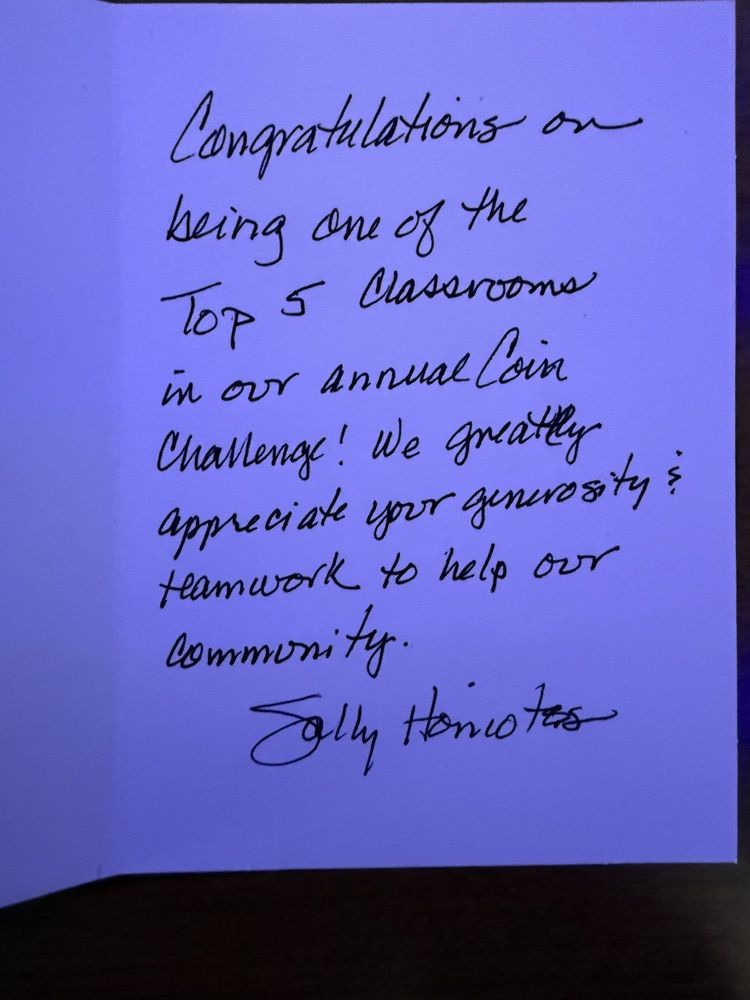 Congratulations on
being one of the
Top 5 Classrooms
in our annual Coin
Challenge! We greatly
appreciate your generosity &
teamwork to help our
community.
Sally